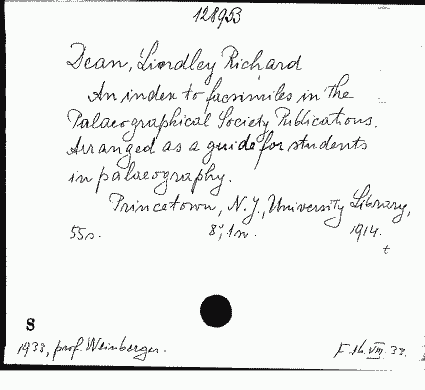 128953
Dean, Lindley Richard
An index to facsimiles in the
Palaeographical Society Publications.
Arranged as a guide for students
in palaeography.
Princetown, N.J., University Library,
55s. 8°, 1n. 1914.
t
8
1938, prof. Weinberger.